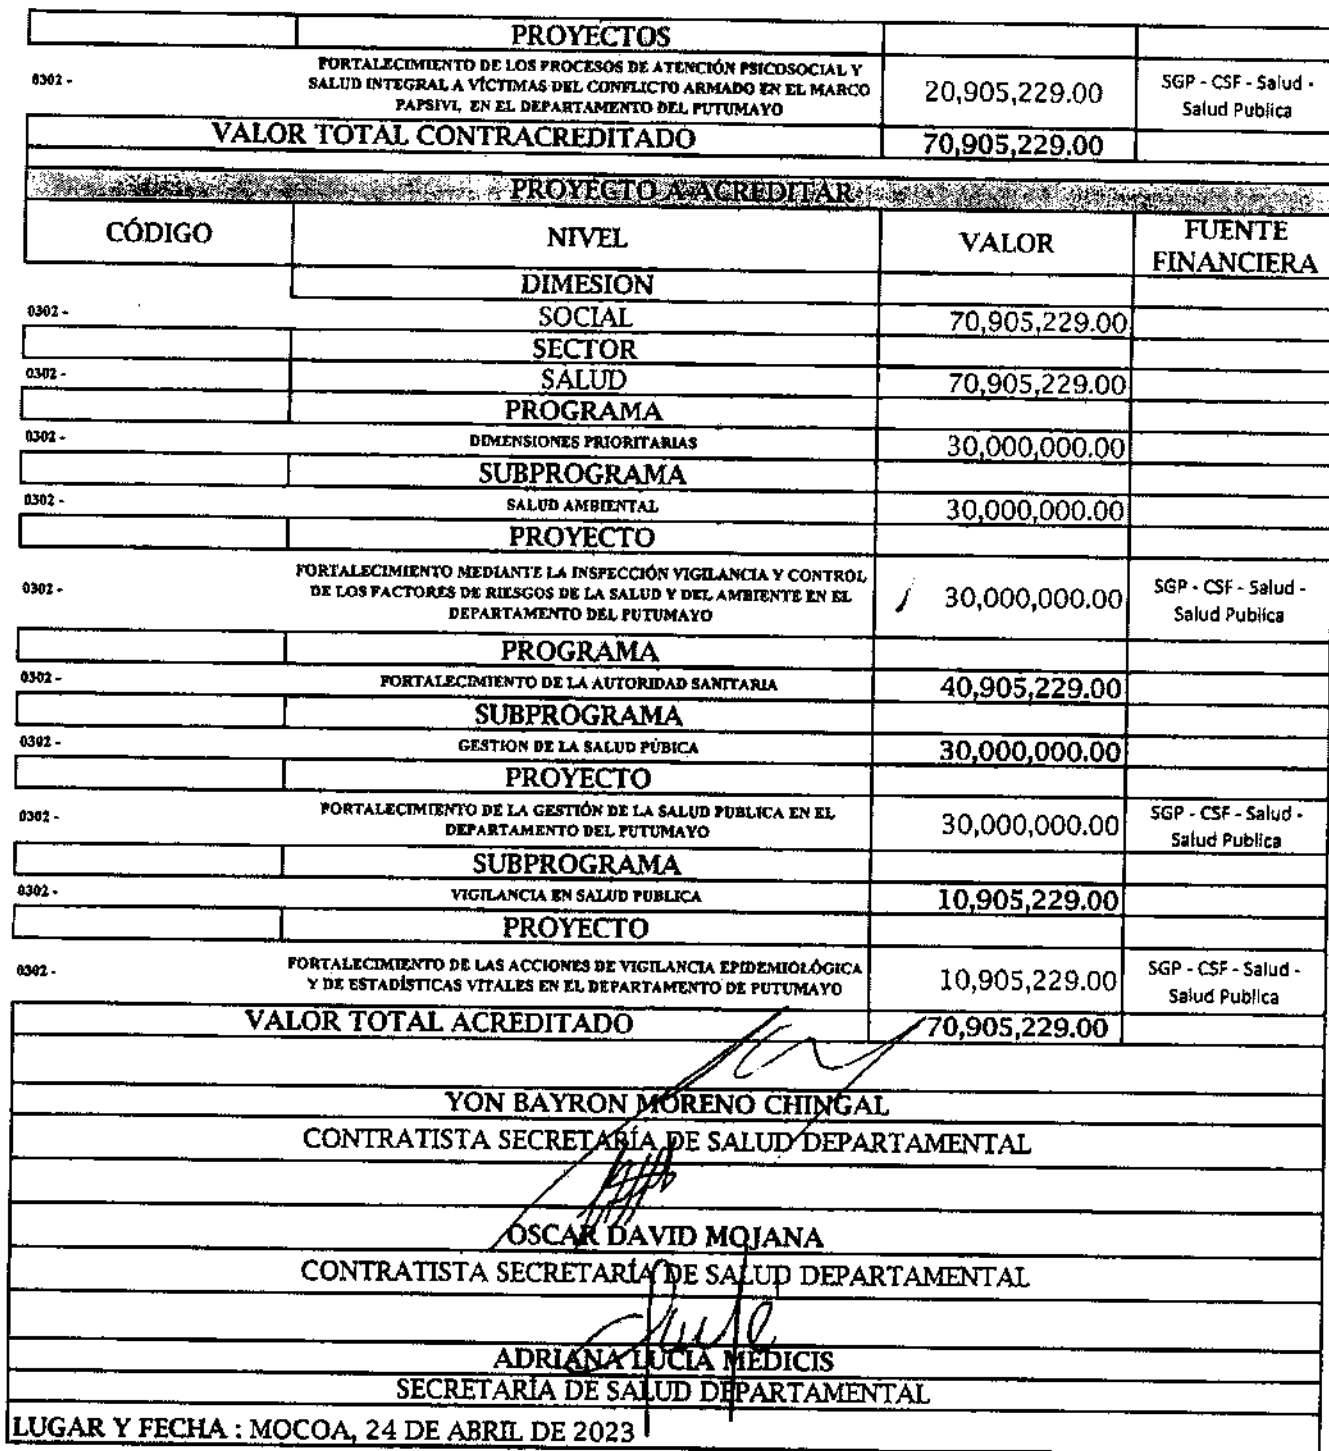 PROYECTOS
0302 -
FORTALECIMIENTO DE LOS PROCESOS DE ATENCIÓN PSICOSOCIAL Y
SALUD INTEGRAL A VÍCTIMAS DEL CONFLICTO ARMADO EN EL MARCO
PAPSIVI, EN EL DEPARTAMENTO DEL PUTUMAYO
20,905,229.00
SGP - CSF - Salud -
Salud Publica
VALOR TOTAL CONTRACREDITADO 70,905,229.00
PROYECTO A ACREDITAR
CÓDIGO NIVEL VALOR FUENTE
FINANCIERA
DIMESION
0302 - SOCIAL 70,905,229.00
SECTOR
0302 - SALUD 70,905,229.00
PROGRAMA
0302 - DIMENSIONES PRIORITARIAS 30,000,000.00
SUBPROGRAMA
0302 - SALUD AMBIENTAL 30,000,000.00
PROYECTO
0302 -
FORTALECIMIENTO MEDIANTE LA INSPECCIÓN VIGILANCIA Y CONTROL
DE LOS FACTORES DE RIESGOS DE LA SALUD Y DEL AMBIENTE EN EL
DEPARTAMENTO DEL PUTUMAYO
30,000,000.00
SGP - CSF - Salud -
Salud Publica
PROGRAMA
0302 - FORTALECIMIENTO DE LA AUTORIDAD SANITARIA 40,905,229.00
SUBPROGRAMA
0302 - GESTION DE LA SALUD PÚBICA 30,000,000.00
PROYECTO
0302 -
FORTALECIMIENTO DE LA GESTIÓN DE LA SALUD PUBLICA EN EL
DEPARTAMENTO DEL PUTUMAYO
30,000,000.00
SGP - CSF - Salud -
Salud Publica
SUBPROGRAMA
0302 - VIGILANCIA EN SALUD PUBLICA 10,905,229.00
PROYECTO
0302 -
FORTALECIMIENTO DE LAS ACCIONES DE VIGILANCIA EPIDEMIOLÓGICA
Y DE ESTADÍSTICAS VITALES EN EL DEPARTAMENTO DE PUTUMAYO
10,905,229.00
SGP - CSF - Salud -
Salud Publica
VALOR TOTAL ACREDITADO 70,905,229.00
YON BAYRON MORENO CHINGAL
CONTRATISTA SECRETARÍA DE SALUD DEPARTAMENTAL
OSCAR DAVID MOJANA
CONTRATISTA SECRETARÍA DE SALUD DEPARTAMENTAL
ADRIANA LUCIA MEDICIS
SECRETARÍA DE SALUD DEPARTAMENTAL
LUGAR Y FECHA : MOCOA, 24 DE ABRIL DE 2023